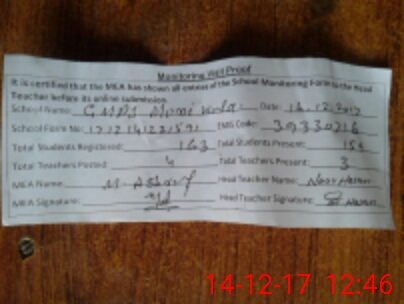 Monitoring Act Proof
It is certified that the MEA has shown all entries of the School Monitoring Form to the Head
Teacher before its online submission.
School Name: GMPS Date: 14.12.2017
School Form No: EMIS Code: 39330216
Total Students Registered: 163 Total Students Present: 154
Total Teachers Posted: 4 Total Teachers Present: 3
MEA Name: M. Ashraf Head Teacher Name:
MEA Signature: Head Teacher Signature:
14-12-17 12:46